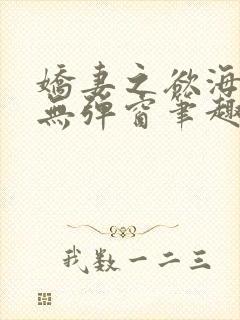 嬌妻之欲海
無彈窗筆趣
我数一二三